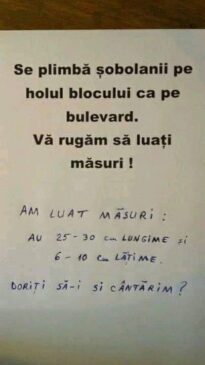 Se plimbă șobolanii pe
holul blocului ca pe
bulevard.
Vă rugăm să luați
măsuri !
AM LUAT MĂSURI :
AU 25-30 cm LUNGIME și
6-10 cm LĂȚIME.
DORIȚI SĂ-i și CÂNTĂRIM ?